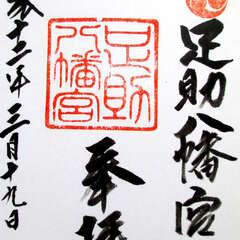 足助八幡宮
奉拝
足助
八幡宮
成十二年三月十九日